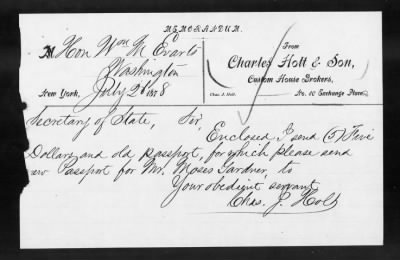 MEMORANDUM.
M Hon Wm M Evarts
From
Charles Holt & Son,
Washington
Custom House Brokers,
New York, July 2d 1878
Chas. J. Holt.
No. 60 Exchange Place
Secretary of State, Sir,
Enclosed I send (5) Five
Dollars and old passport, for which please send
new Passport for Mr. Moses Gardner, to
Your obedient servant
Chas. J. Holt